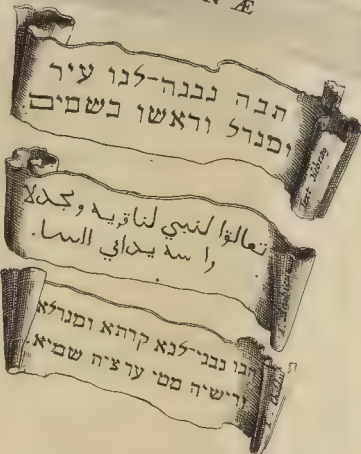 הבה נבנה-לנו עיר
ומגדל וראשו בשמים
تعالوا لنبني لنا قريه ومجدلا
را سه يداني السما.
הבו נבני-לנא קרתא ומגדלא
ורישיה מטי עד צית שמיא.